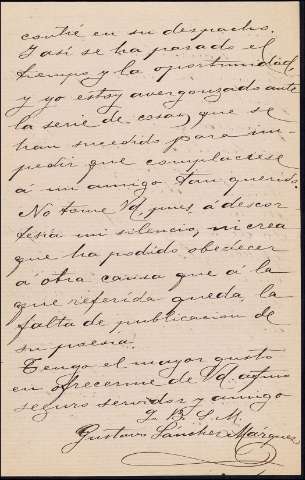 confié en su despacho.
Y así se ha pasado el
tiempo y la oportunidad,
y yo estoy avergonzado ante
la serie de cosas que se
han sucedido para im-
pedir que complaciese
á un amigo tan querido.
No tome Vd. pues, á descor
tesía mi silencio, ni crea
que ha podido obedecer
á otra causa que á la
que referida queda, la
falta de publicacion de
su poesia.
Tengo el mayor gusto
en ofrecerme de Vd. affmo
seguro servidor y amigo
Q. B. S. M.
Gustavo Sánchez Márquez